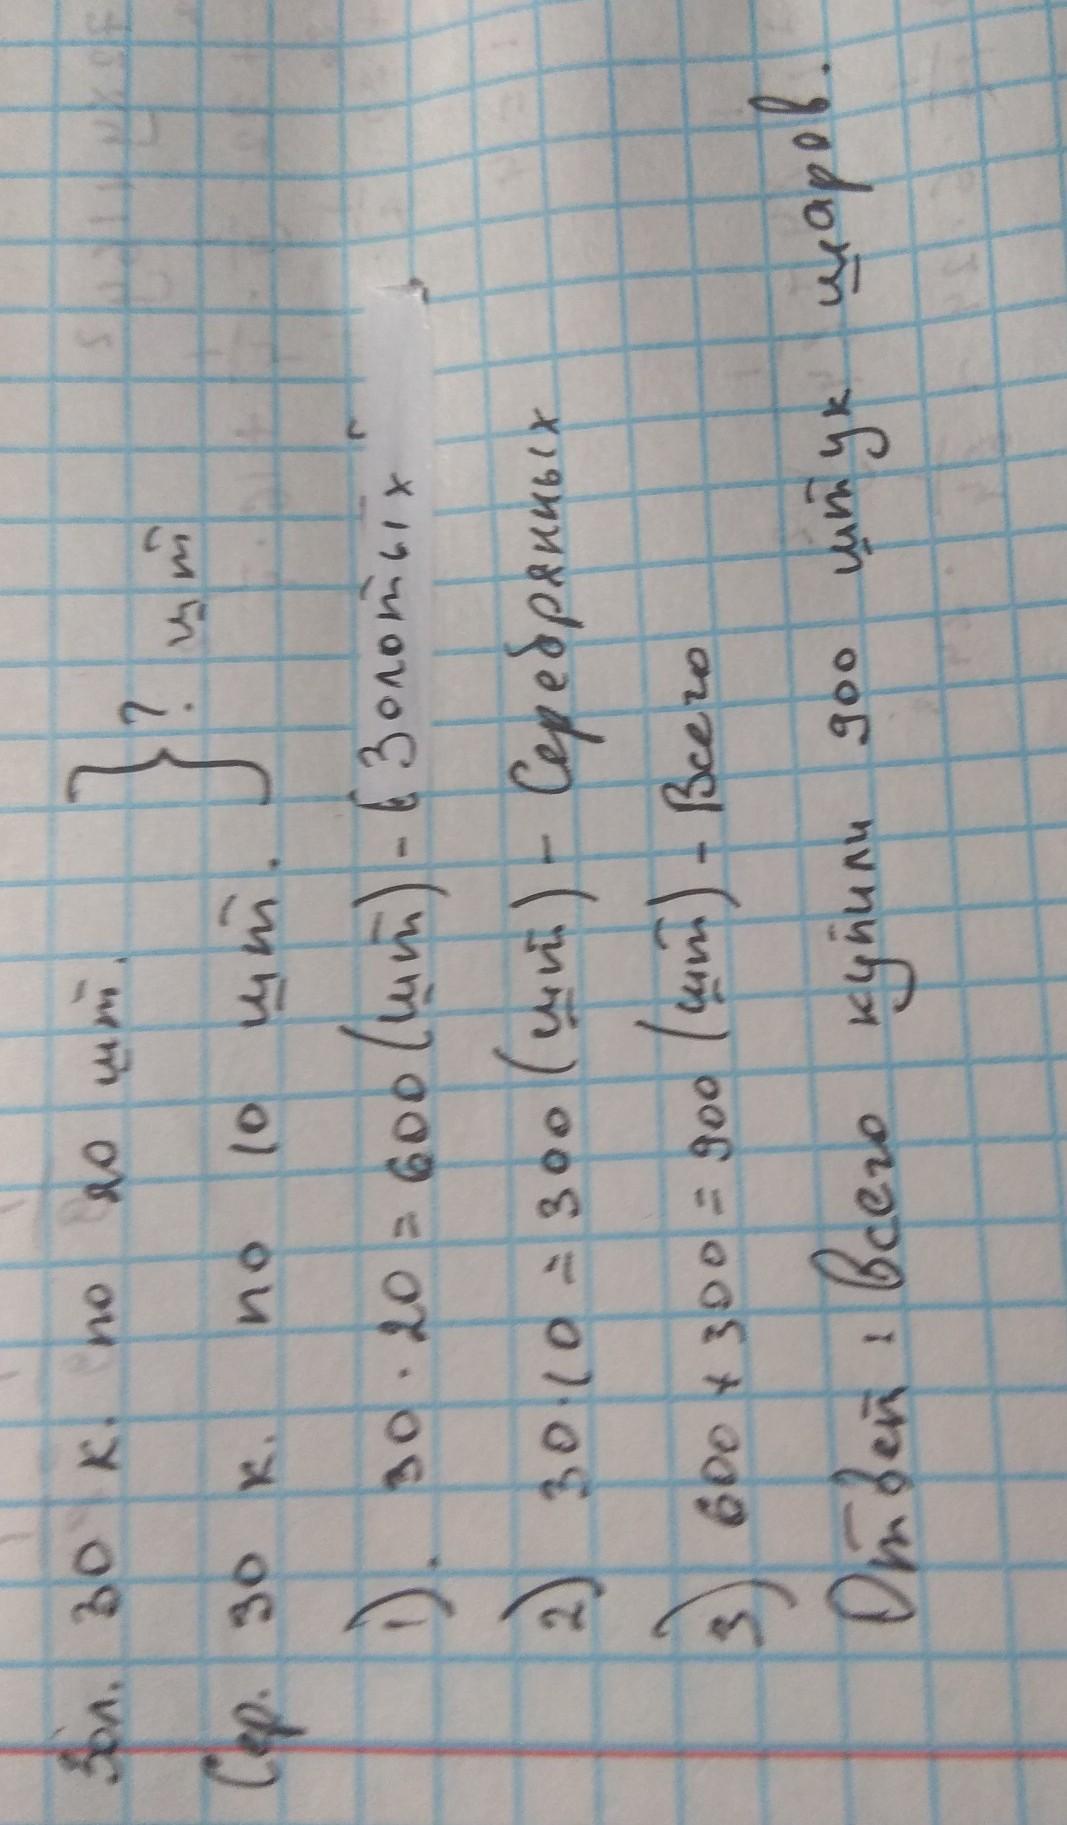 Зол. 30 к. по 20 шт.
Сер. 30 к. по 10 шт. } ? шт
1). 30 · 20 = 600 (шт) - Золотых
2) 30 · 10 = 300 (шт) - Серебрянных
3) 600 + 300 = 900 (шт) - Всего
Ответ: Всего купили 900 штук шаров.